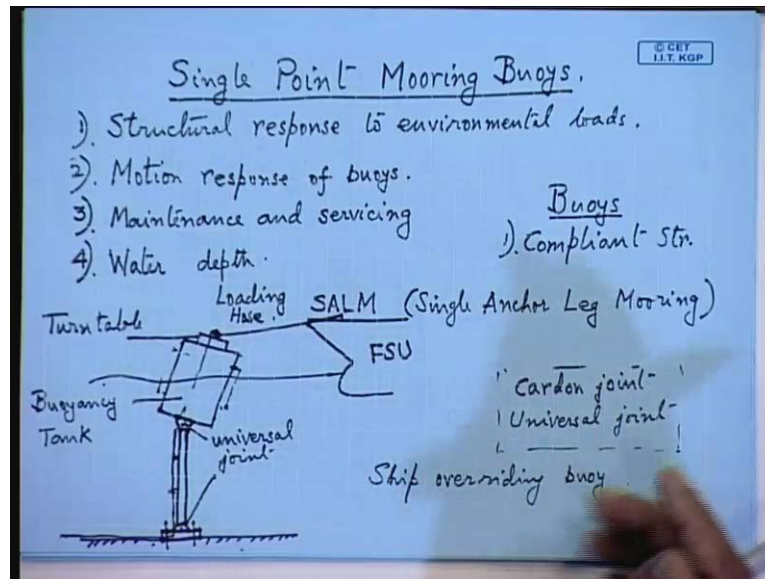 © CET
I.I.T. KGP
Single Point Mooring Buoys.
1). Structural response to environmental loads.
2). Motion response of buoys.
3). Maintenance and servicing
4). Water depth.
Buoys
1). Compliant Str.
Loading
Hose.
SALM (Single Anchor Leg Mooring)
Turn table
FSU
Buoyancy
Tank
universal
joint
Cardon joint
Universal joint
Ship overriding buoy.